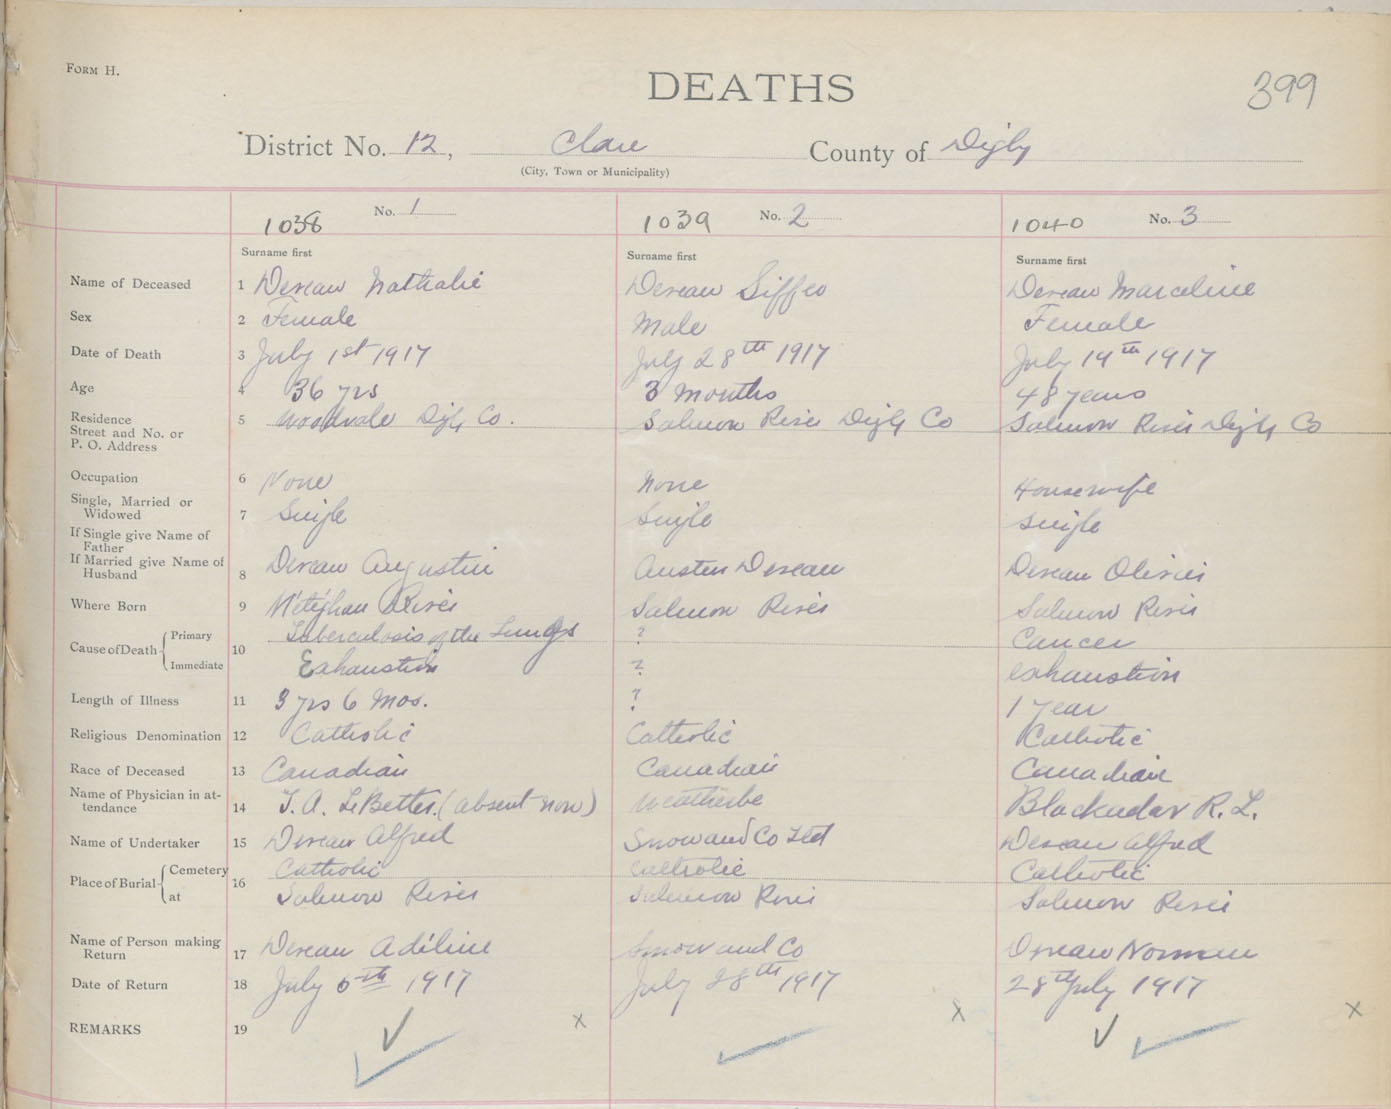 FORM H.
DEATHS
399
District No. 12, Clare County of Digby
(City, Town or Municipality)
1038 No. 1 1039 No. 2 1040 No. 3
Surname first Surname first Surname first
Name of Deceased 1 Deveau Nathalie Deveau Siffeo Deveau Marceline
Sex 2 Female Male Female
Date of Death 3 July 1st 1917 July 28th 1917 July 19th 1917
Age 4 36 yrs 3 Months 48 years
Residence
Street and No. or 5 Woodvale Digby Co. Salmon River Digby Co Salmon River Digby Co
P. O. Address
Occupation 6 None None Housewife
Single, Married or
Widowed 7 Single Single Single
If Single give Name of
Father
If Married give Name of
Husband 8 Deveau Augustin Austen Deveau Deveau Olivier
Where Born 9 Meteghan River Salmon River Salmon River
Cause of Death Primary 10 Tuberculosis of the Lungs ? Cancer
Immediate Exhaustion ? exhaustion
Length of Illness 11 3 yrs 6 Mos. ? 1 year
Religious Denomination 12 Catholic Catholic Catholic
Race of Deceased 13 Canadian Canadian Canadian
Name of Physician in at-
tendance 14 (absent now) Weatherbe Blackadar R. L.
Name of Undertaker 15 Deveau Alfred Snow and Co Ltd Deveau Alfred
Place of Burial Cemetery 16 Catholic Catholic Catholic
at Salmon River Salmon River Salmon River
Name of Person making
Return 17 Deveau Adéline Snow and Co Deveau Norman
Date of Return 18 July 6th 1917 July 28th 1917 28th July 1917
REMARKS 19 x x x